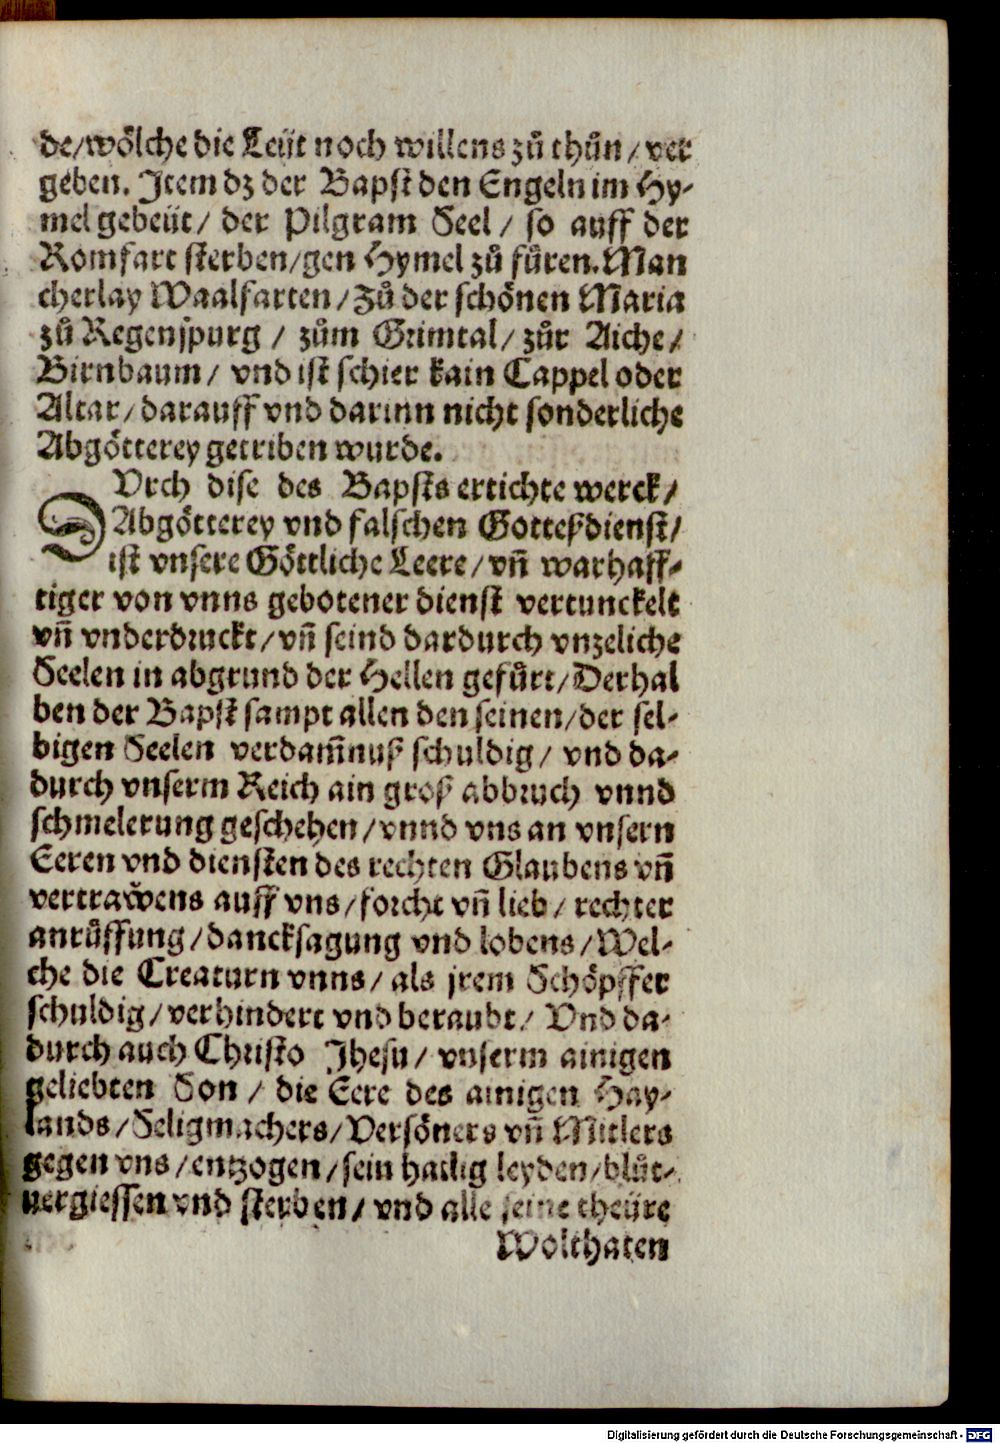 de/wölche die Leüt noch willens zů thůn/ver
geben. Item dz der Bapst den Engeln im Hy-
mel gebeüt/ der Pilgram Seel/ so auff der
Romfart sterben/gen Hymel zů fůren. Man
cherlay Waalfarten/Zů der schönen Maria
zů Regenspurg / zům Grimtal/ zůr Aiche/
Birnbaum/ vnd ist schier kain Cappel oder
Altar/darauff vnd darinn nicht sonderliche
Abgötterey getriben wurde.
DVrch dise des Bapsts ertichte werck/
Abgötterey vnd falschen Gotteßdienst/
ist vnsere Göttliche Leere/vñ warhaff-
tiger von vnns gebotener dienst vertunckelt
vñ vnderdruckt/vñ seind dardurch vnzeliche
Seelen in abgrund der Hellen gefůrt/Derhal
ben der Bapst sampt allen den seinen/der sel-
bigen Seelen verdam̃nuß schuldig/ vnd da-
durch vnserm Reich ain groß abbruch vnnd
schmelerung geschehen/vnnd vns an vnsern
Eeren vnd diensten des rechten Glaubens vñ
vertraẘens auff vns/forcht vñ lieb/ rechter
anrůffung/dancksagung vnd lobens/Wel-
che die Creaturn vnns/ als jrem Schöpffer
schuldig/verhindert vnd beraubt/ Vnd da-
durch auch Christo Jhesu/ vnserm ainigen
geliebten Son / die Eere des ainigen Hay-
lands/Seligmachers/Versöners vñ Mitlers
gegen vns/entzogen/sein hailig leyden/blůt-
uergiessen vnd sterben/ vnd alle seine theüre
Wolthaten
Digitalisierung gefördert durch die Deutsche Forschungsgemeinschaft - DFG